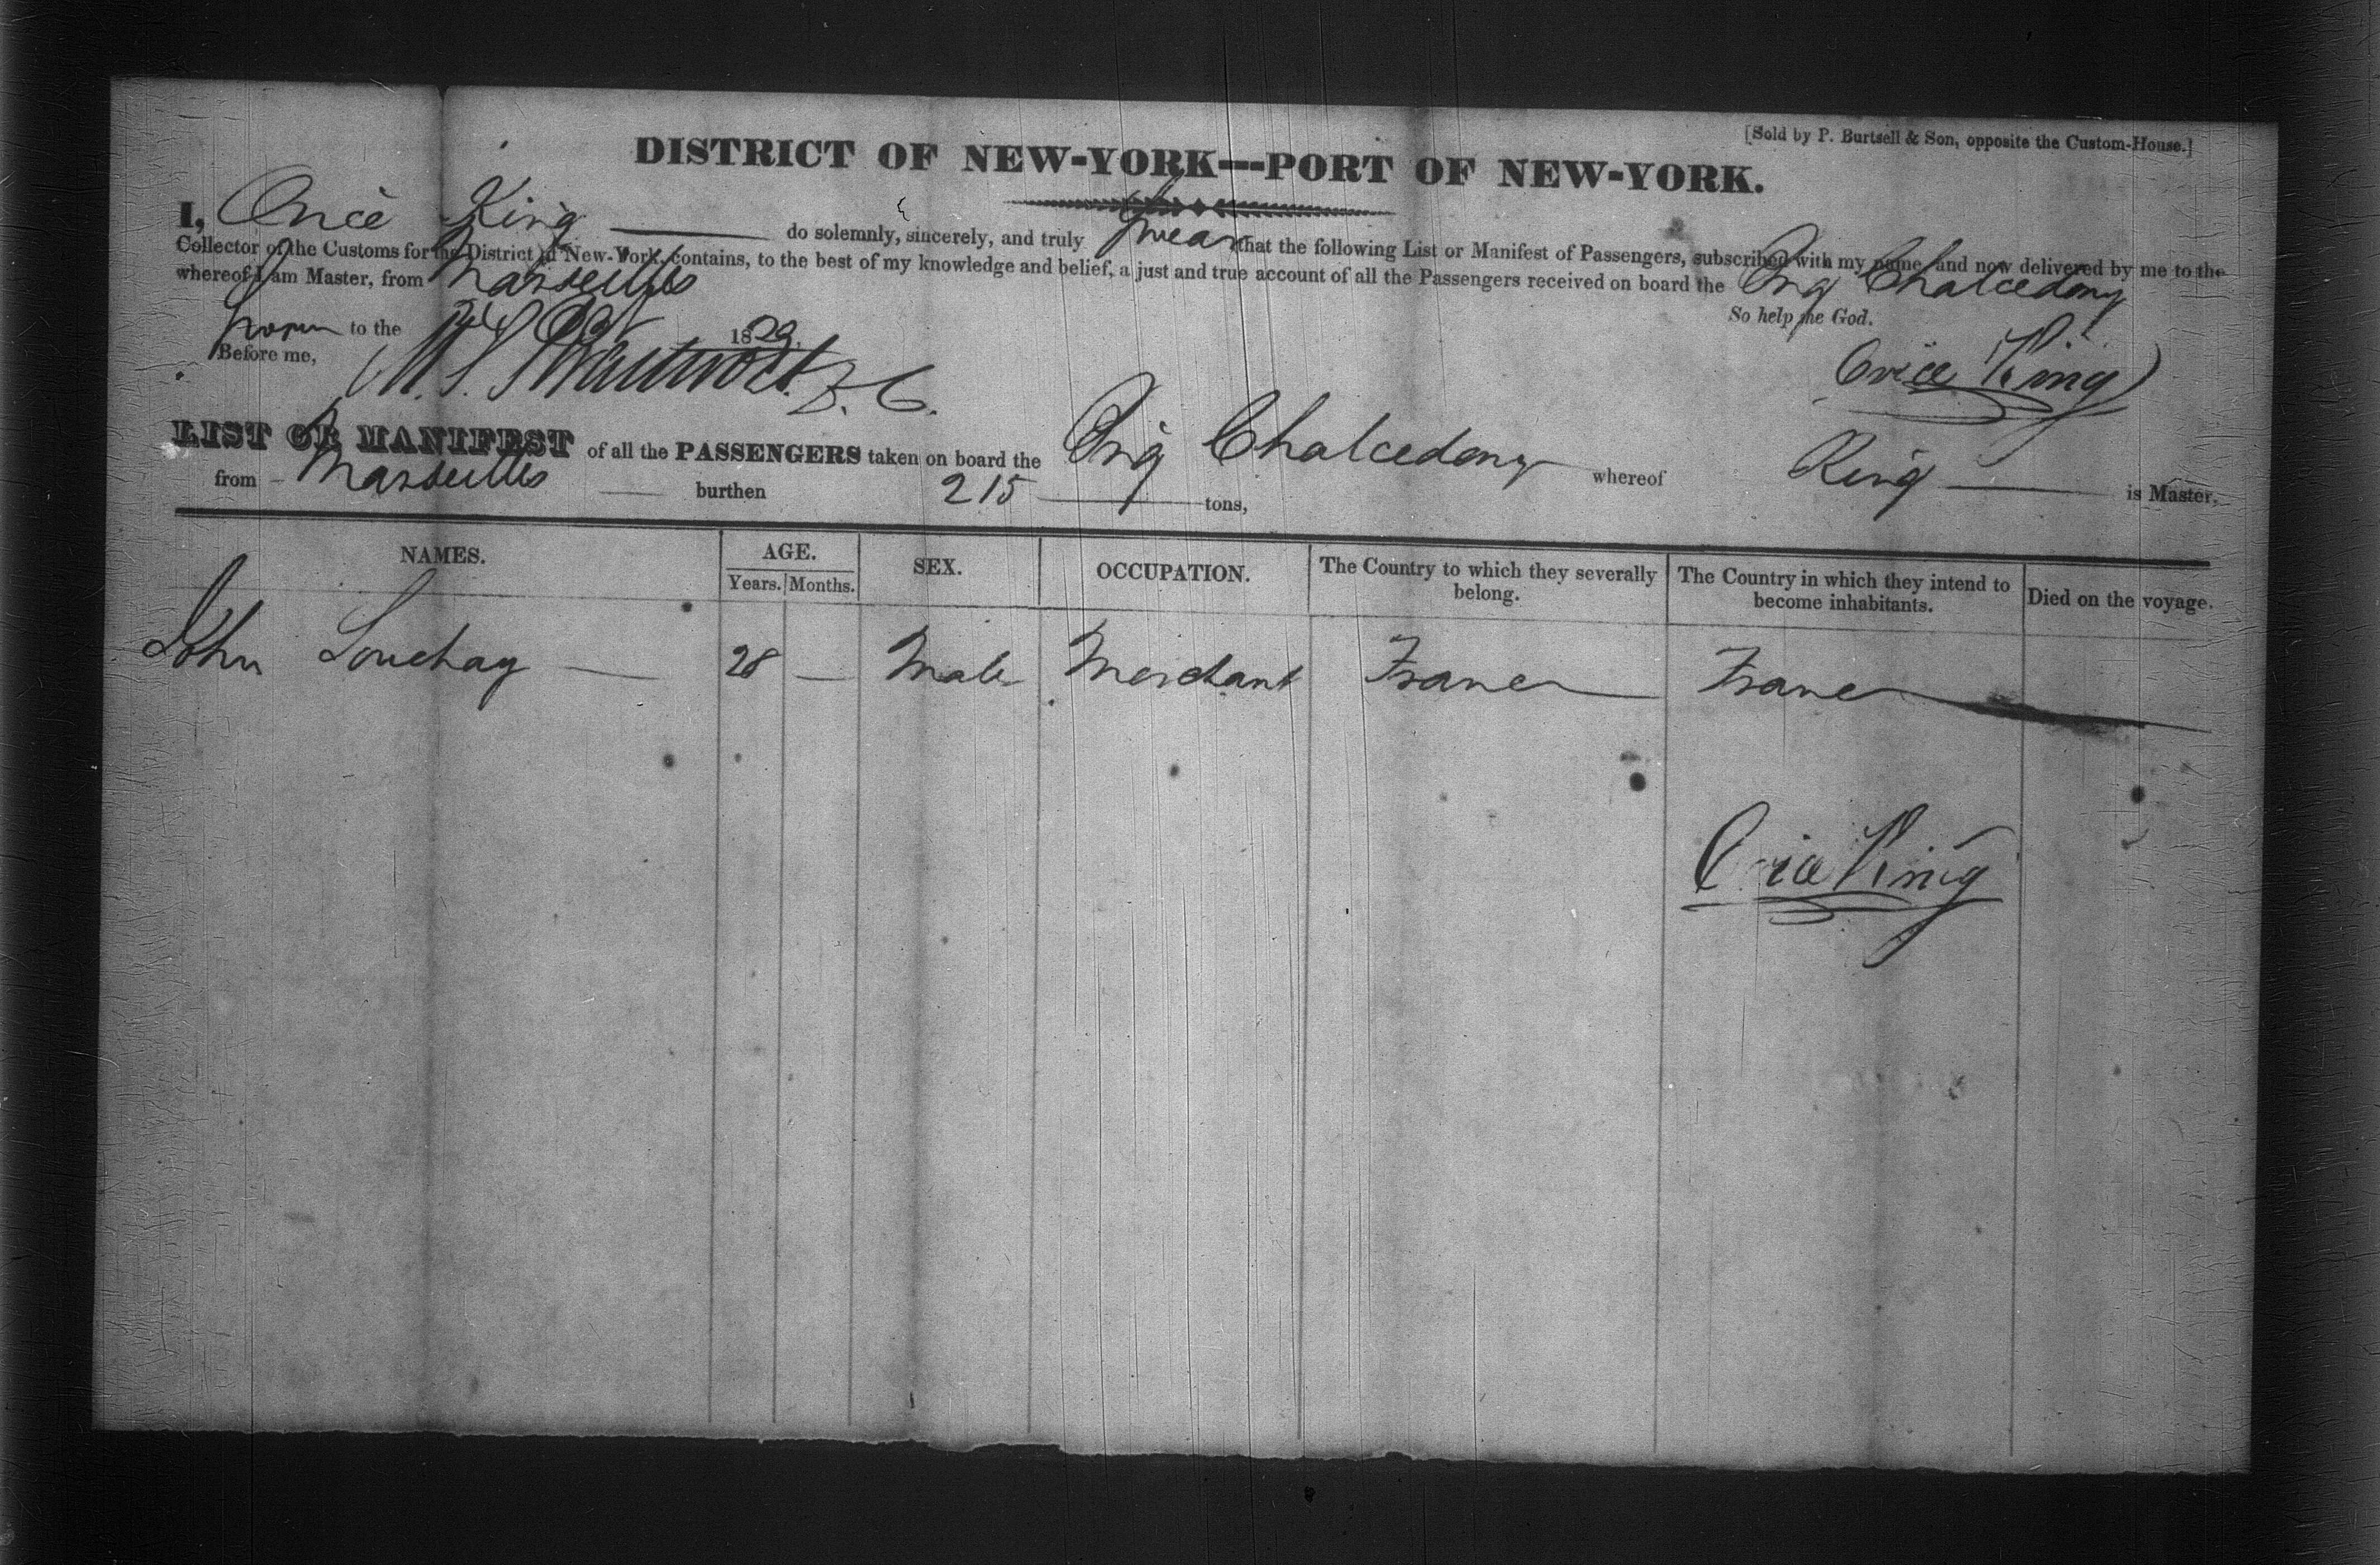 [Sold by P. Burtsell & Son, opposite the Custom-House.]
DISTRICT OF NEW-YORK—PORT OF NEW-YORK.
I, Orice King do solemnly, sincerely, and truly Swear that the following List or Manifest of Passengers, subscribed with my name, and now delivered by me to the
Collector of the Customs for the District of New-York, contains, to the best of my knowledge and belief, a just and true account of all the Passengers received on board the Brig Chalcedony
whereof I am Master, from Marseilles
So help me God.
Sworn to the 1829,
Orice King
Before me,
LIST OR MANIFEST of all the PASSENGERS taken on board the Brig Chalcedony whereof King is Master,
from Marseilles burthen 215 tons,
NAMES. AGE. SEX. OCCUPATION. The Country to which they severally belong. The Country in which they intend to become inhabitants. Died on the voyage.
Years. Months.
John Louchay 28 — Male Merchant France France
Orice King